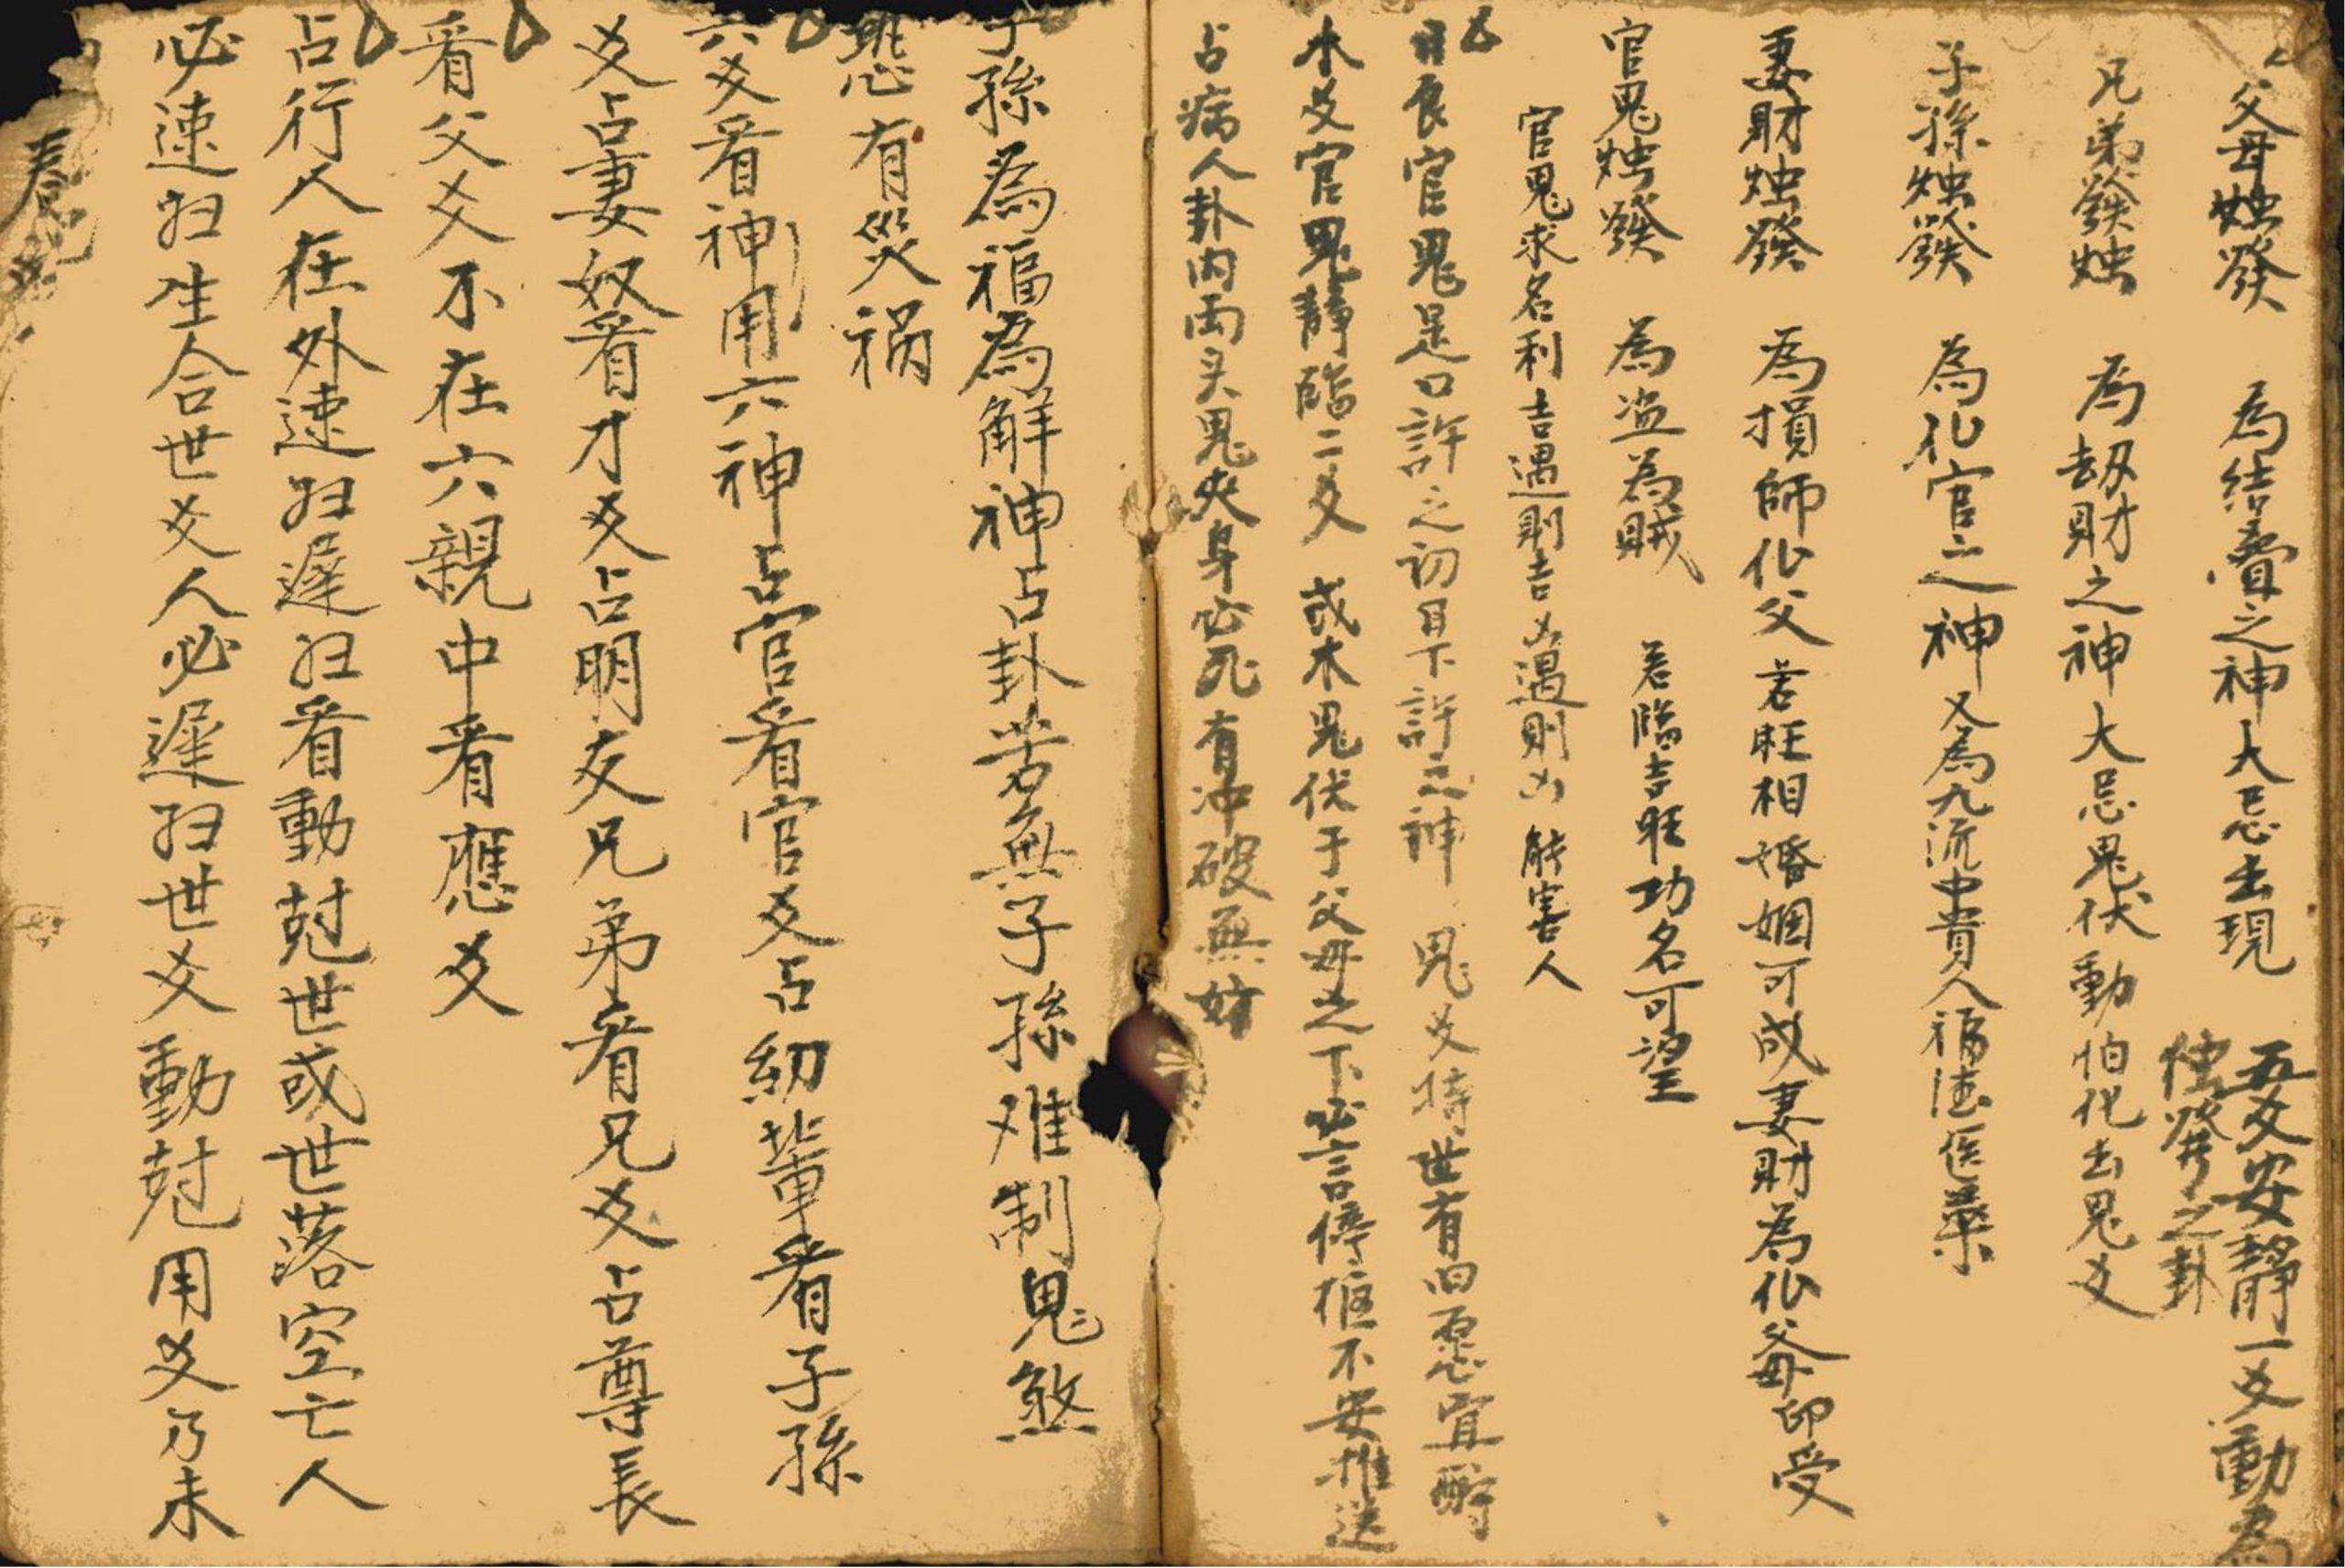 父母烛發 為結疊之神大忌出現
五爻安静一爻動為
独發之卦
兄弟發烛 為劫財之神大忌鬼伏動怕化出鬼爻
子孫烛發 為化官之神又為九流中貴人福德医藥
妻財烛發 為損師化父若旺相婚姻可成妻財為化父母印受
官鬼烛發 為盗為賊 若臨吉旺功名可望
官鬼求名利吉遇則吉凶遇則凶能害人
官鬼是口許之初目下許之神鬼爻持世有旧愿宜酧
水爻官鬼静臨二爻或木鬼伏于父母之下必言停柩不安推送
占病人卦内両头鬼夾身必死有冲破無妨
子孫為福為解神占卦苦無子孫难制鬼煞
恐有災祸
六爻看神用六神占官看官爻占紉輩看子孫
爻占妻奴看才爻占明友兄弟看兄爻占尊長
看父爻不在六親中看應爻
占行人在外速归遲归看動尅世或世落空亡人
必速归生合世爻人必遲归世爻動尅用爻乃未